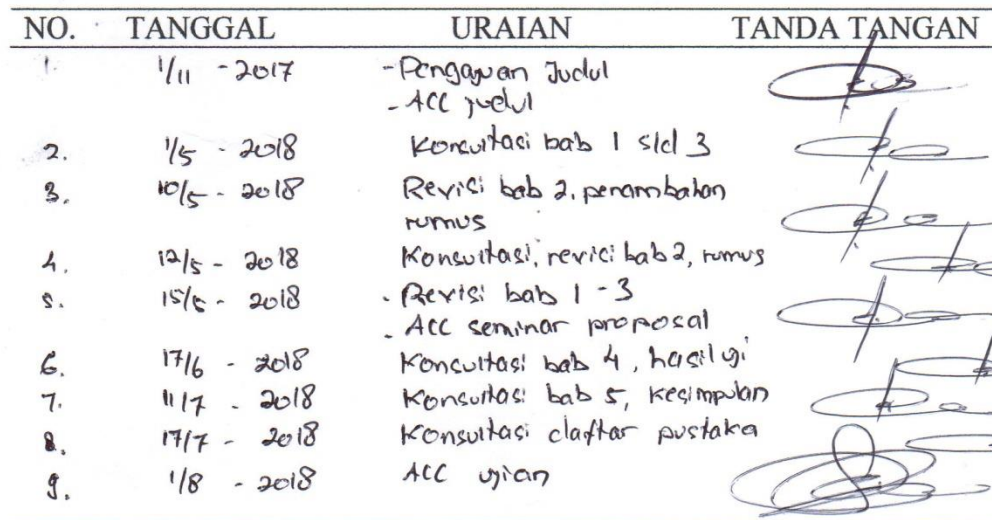 NO. TANGGAL URAIAN TANDA TANGAN
1. 1/11 - 2017 - Pengajuan Judul
- ACC judul
2. 1/5 - 2018 Konsultasi bab 1 s/d 3
3. 10/5 - 2018 Revisi bab 2, penambahan
rumus
4. 12/5 - 2018 Konsultasi, revisi bab 2, rumus
5. 15/5 - 2018 - Revisi bab 1 - 3
- ACC seminar proposal
6. 17/6 - 2018 Konsultasi bab 4, hasil uji
7. 11/7 - 2018 Konsultasi bab 5, kesimpulan
8. 17/7 - 2018 Konsultasi daftar pustaka
9. 1/8 - 2018 ACC ujian